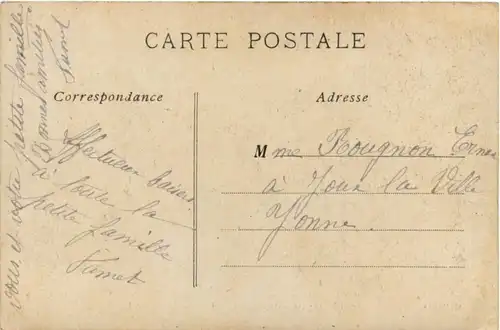 CARTE POSTALE
Correspondance
Adresse
Affectueux baisers
à toute la
petite famille
Jamet
vous et votre petite famille
Jamet
Mme Rougnon Ernes
à Joux la Ville
Yonne